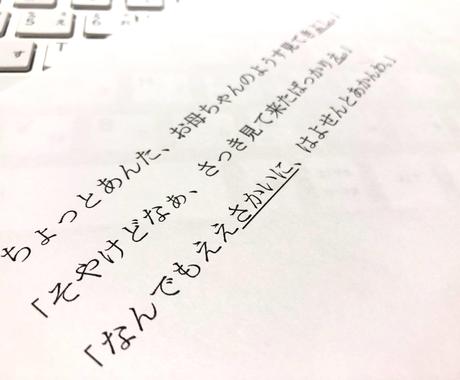 ちょっとあんた、お母ちゃんのようす見て来よし」
「そやけどなぁ、さっき見て来たばっかりえ」
「なんでもええさかいに、はよせんとあかんわ」